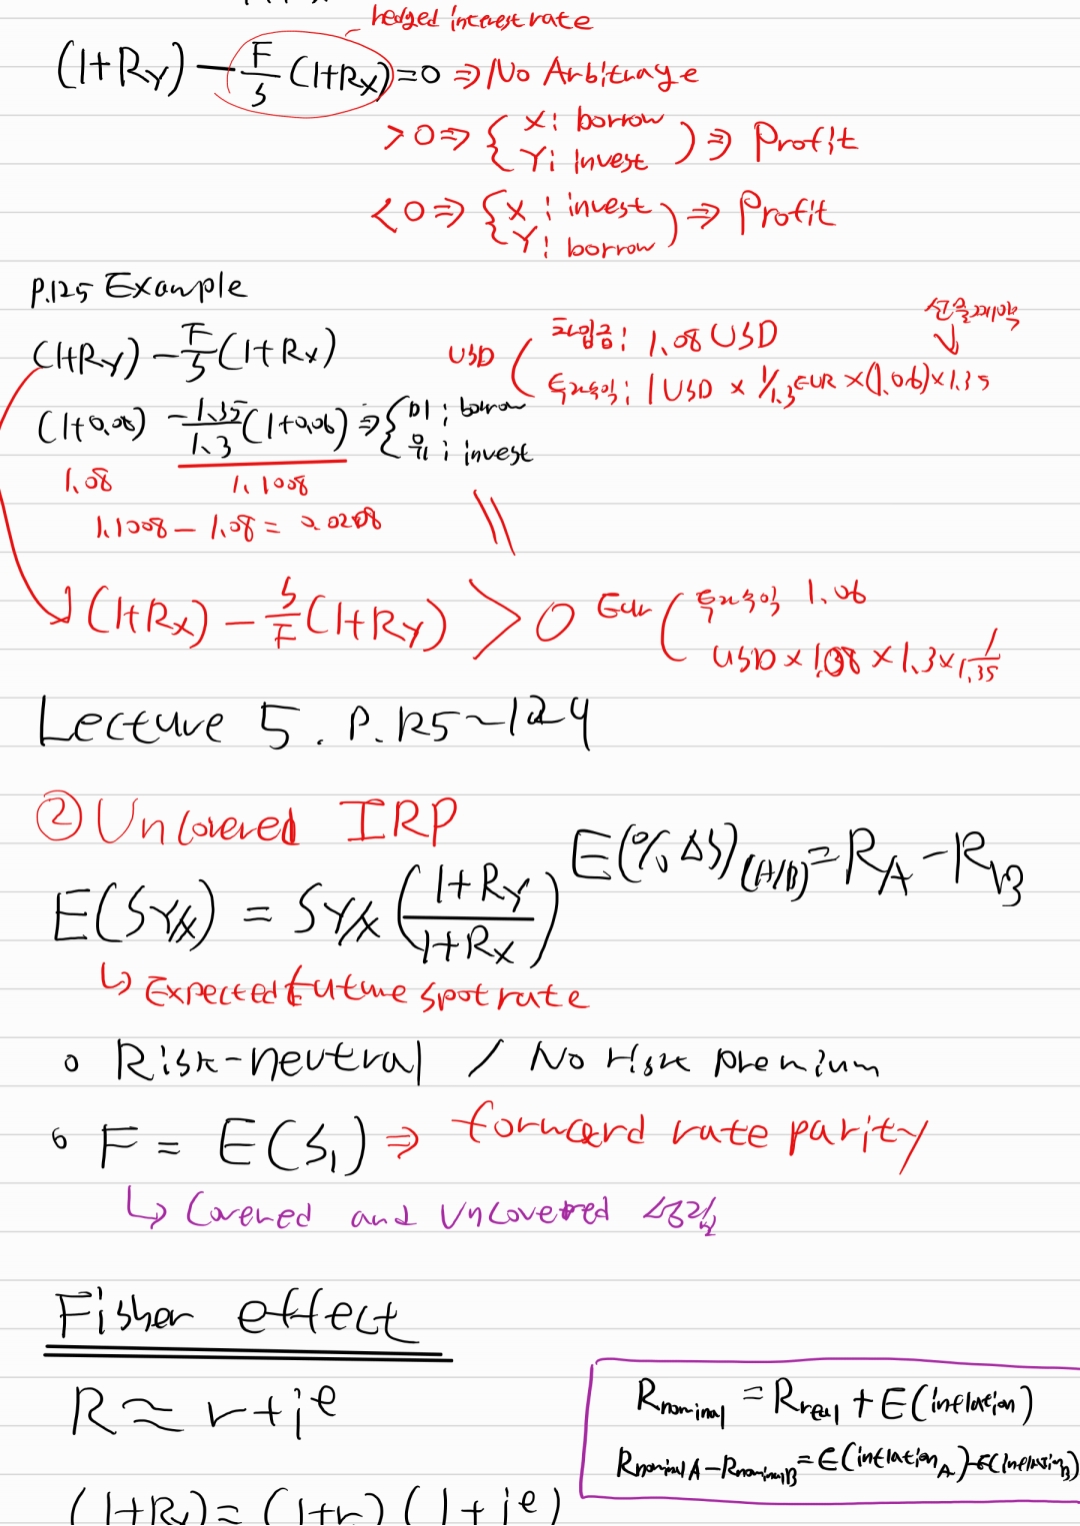 hedged interest rate
(1+RY) - F/S (1+RX) = 0 ⇒ No Arbitrage
> 0 ⇒ { X: borrow
Y: Invest ) ⇒ Profit
< 0 ⇒ { X: invest
Y: borrow ) ⇒ Profit
P.125 Example
선물계약
(1+RY) - F/S (1+RX)
USD ( 차입금: 1.08 USD
투자수익: 1 USD × 1/1.3 EUR × (1.06) × 1.35
(1+0.08) - 1.35/1.3 (1+0.06) ⇒ { 미: borrow
유: invest
1.08 1.1008
1.1008 - 1.08 = 0.0208
(1+RX) - S/F (1+RY) > 0 Eur ( 투자수익 1.06
USD × 1.08 × 1.3 × 1/1.35
Lecture 5. P.125~124
② Uncovered IRP
E(%ΔS)(A/B) = RA - RB
E(SY/X) = SY/X (1+RY / 1+RX)
↳ Expected future spot rate
◦ Risk-neutral / No risk premium
◦ F = E(S1) ⇒ forward rate parity
↳ Covered and Uncovered 성립
Fisher effect
R ≈ r + ie
Rnominal = Rreal + E(inflation)
Rnominal A - Rnominal B = E(inflation A) - E(Inflation B)
(1+R) = (1+r) (1+ie)